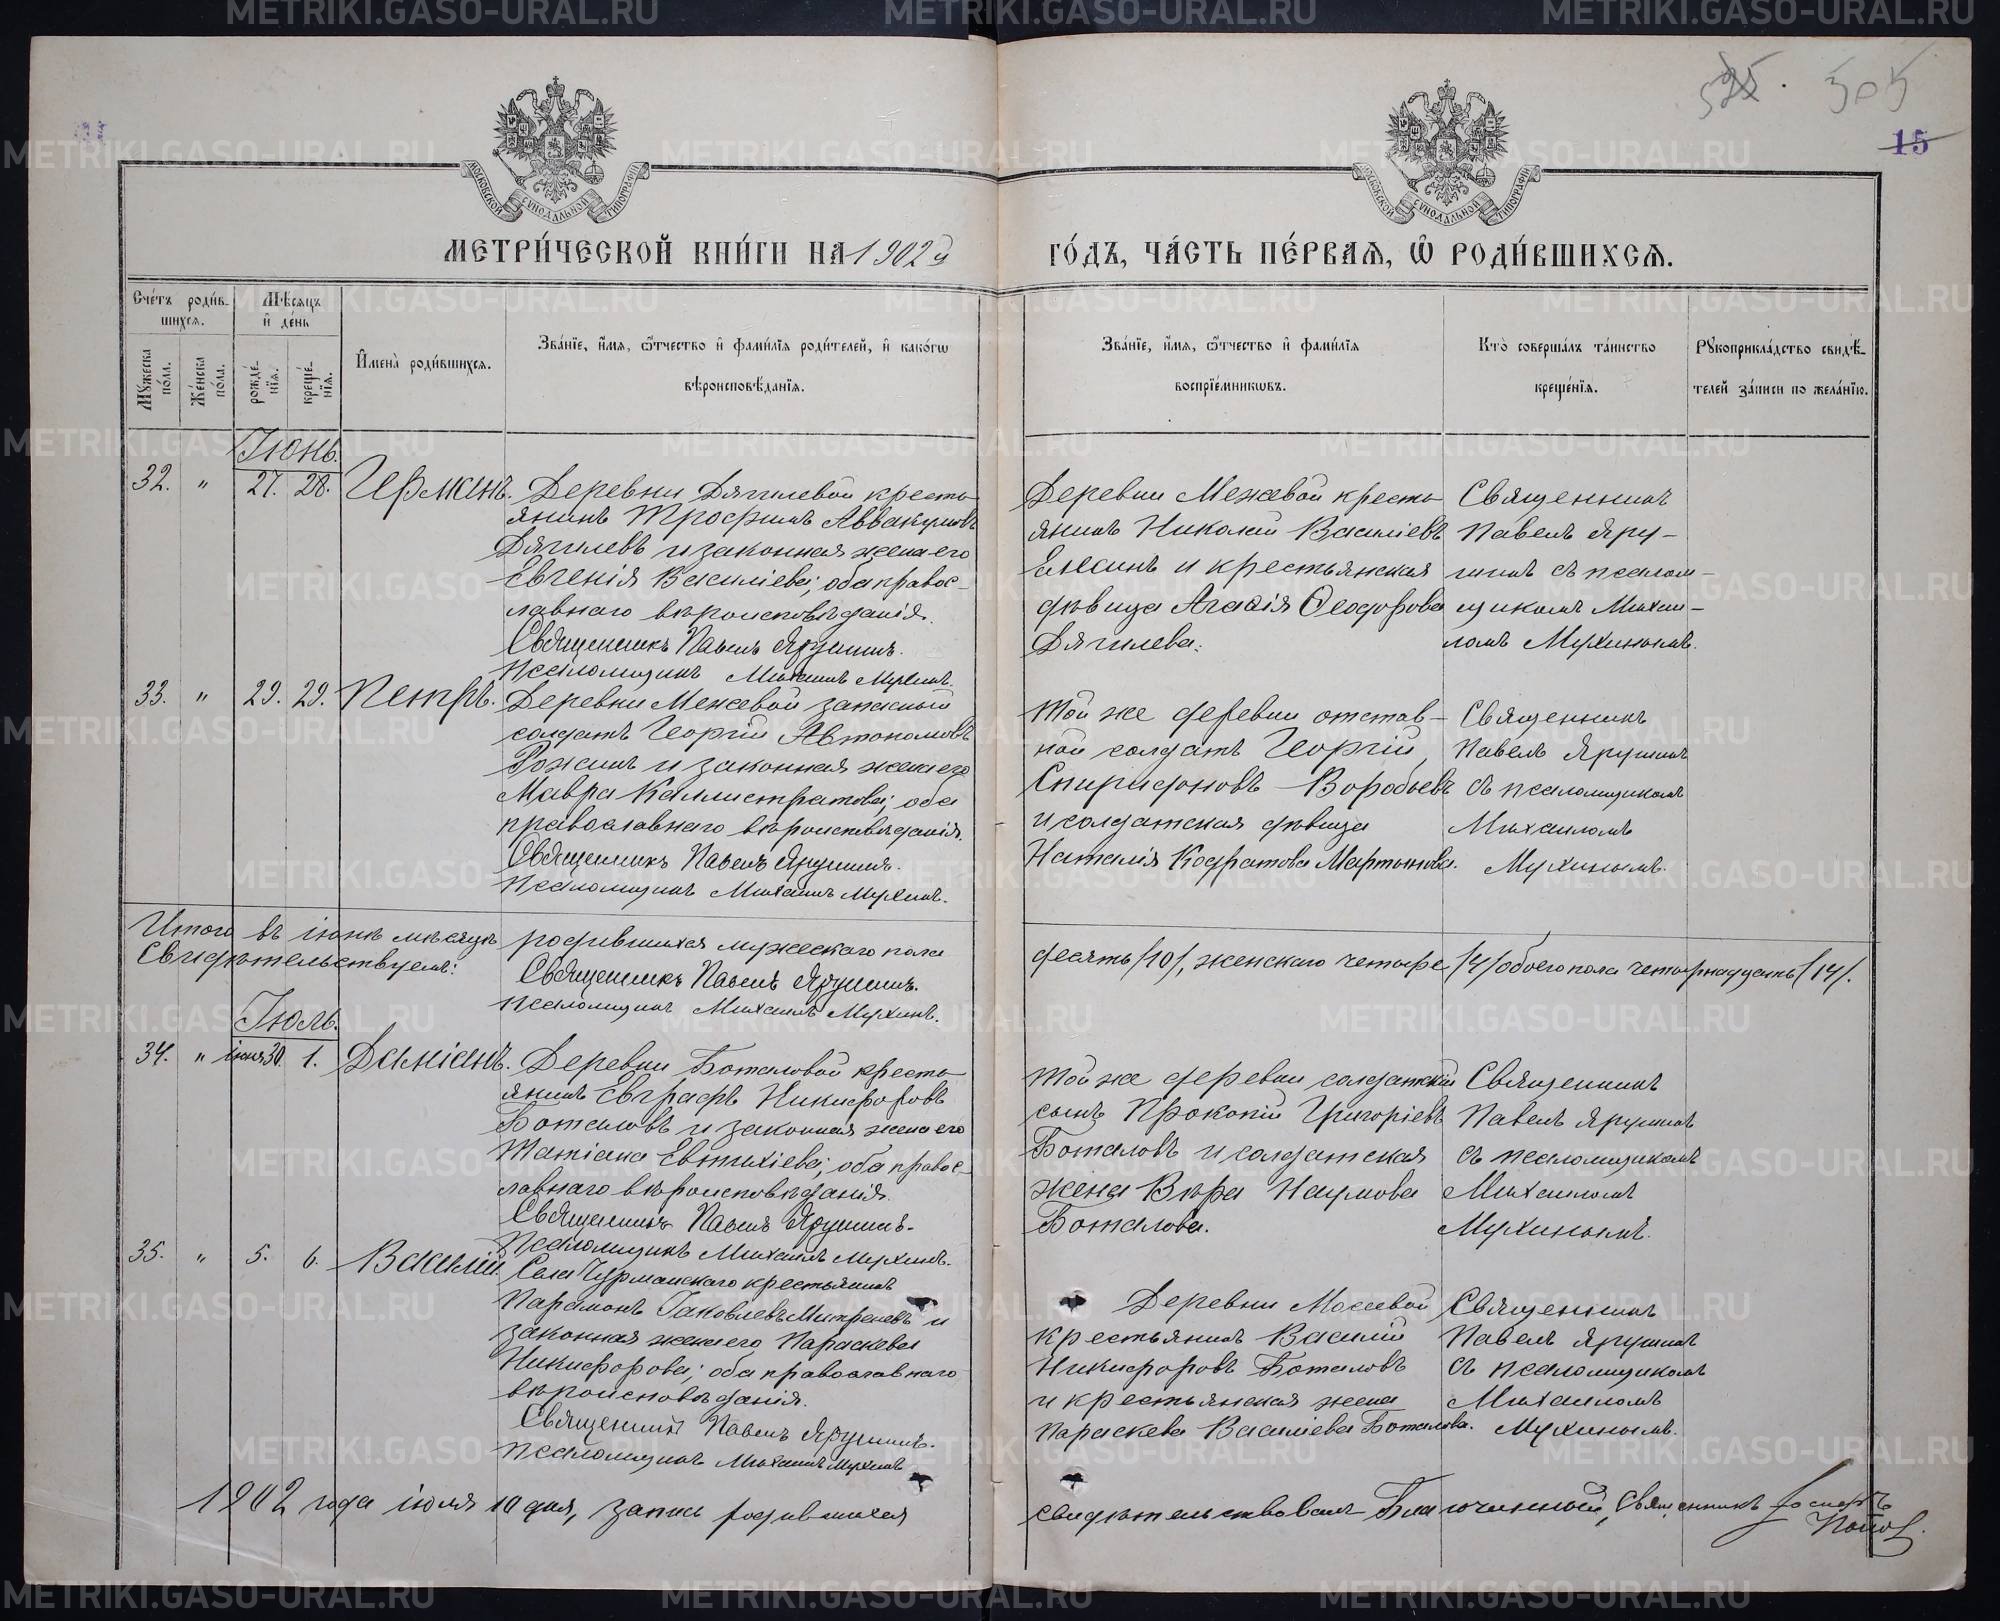 METRIKI.GASO-URAL.RU
305
15
МОСКОВСКОЙ СѴНОДАЛЬНОЙ ТИПОГРАФІИ
МОСКОВСКОЙ СѴНОДАЛЬНОЙ ТИПОГРАФІИ
МЕТРИ́ЧЕСКОЙ КНИ́ГИ НА 1902й
ГО́ДЪ, ЧА́СТЬ ПЕ́РВАЯ, Ѽ РОДИ́ВШИХСЯ.
Сче́тъ роди́в-
шихся.
Мѣ́сяцъ
и҆ де́нь
Мꙋ́жеска по́ла.
Же́нска по́ла.
рожде́-
нїя.
креще́-
нїя.
И҆мена̀ роди́вшихся.
Зва́нїе, и҆́мя, ѻ҆́тчество и҆ фами́лїя роди́телей, и҆ како́гѡ
вѣроисповѣ́данїя.
Зва́нїе, и҆́мя, ѻ҆́тчество и҆ фами́лїя
воспрїе́мникѡвъ.
Кто̀ соверша́лъ та́инство
креще́нїя.
Рꙋкоприкла́дство свидѣ́-
телей за́писи по жела́нїю.
Іюнь.
32. " 27. 28. Германъ.
Деревни Дягилевой кресть-
янинъ Трофимъ Аввакумовъ
Дягилевъ и законная жена его
Евгенія Василіева; оба правос-
лавнаго вѣроисповѣданія.
Священникъ Павелъ Ярушинъ.
Псаломщикъ Михаилъ Мухинъ.
Деревни Межевой кресть-
янинъ Николай Василіевъ
Елесинъ и крестьянская
дѣвица Агаѳія Ѳеодорова
Дягилева.
Священникъ
Павелъ Яру-
шинъ съ псалом-
щикомъ Михаи-
ломъ Мухинымъ.
33. " 29. 29. Петръ.
Деревни Межевой запасный
солдатъ Георгій Автономовъ
Рожинъ и законная жена его
Мавра Каллистратова; оба
православнаго вѣроисповѣданія.
Священникъ Павелъ Ярушинъ.
Псаломщикъ Михаилъ Мухинъ.
Той же деревни отстав-
ной солдатъ Георгій
Спиридоновъ Воробьевъ
и солдатская дѣвица
Наталія Кодратова Мартынова.
Священникъ
Павелъ Ярушинъ
съ псаломщикомъ
Михаиломъ
Мухинымъ.
Итого въ іюнѣ мѣсяцѣ родившихся мужескаго пола десять /10/, женскаго четыре /4/ обоего пола четырнадцать /14/.
Свидѣтельствуемъ:
Священникъ Павелъ Ярушинъ.
Псаломщикъ Михаилъ Мухинъ.
Іюль.
34. " іюня 30 1. Даміанъ.
Деревни Боталовой кресть-
янинъ Евграфъ Никифоровъ
Боталовъ и законная жена его
Татіана Евтихіева; оба правос-
лавнаго вѣроисповѣданія.
Священникъ Павелъ Ярушинъ.
Псаломщикъ Михаилъ Мухинъ.
Той же деревни солдатскій
сынъ Прокопій Григоріевъ
Боталовъ и солдатская
жена Вѣра Наумова
Боталова.
Священникъ
Павелъ Ярушинъ
съ псаломщикомъ
Михаиломъ
Мухинымъ.
35. " 5. 6. Василій.
Села Чурманскаго крестьянинъ
Парамонъ Іаковлевъ и
законная жена его Параскева
Никифорова; оба православнаго
вѣроисповѣданія.
Священникъ Павелъ Ярушинъ.
Псаломщикъ Михаилъ Мухинъ
Деревни Мосеевой
крестьянинъ Василій
Никифоровъ Боталовъ
и крестьянская жена
Параскева Василіева Боталова.
Священникъ
Павелъ Ярушинъ
съ псаломщикомъ
Михаиломъ
Мухинымъ.
1902 года іюля 10 дня, запись родившихся свидѣтельствовалъ Благочинный, Священникъ Іосифъ
Поповъ.